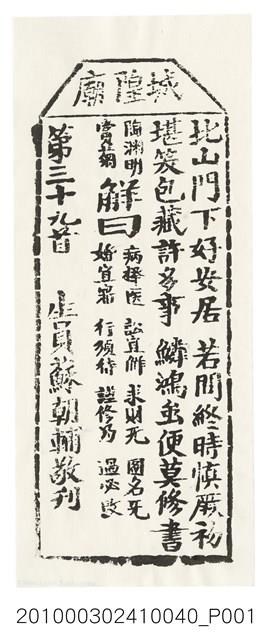 城隍廟
北山門下好安居 若問終時慎厥初
堪笑包藏許多事 鱗鴻雖便莫修書
陶淵明
賞菊
解曰
病擇医 訟宜解 求財无 圖名无
婚宜審 行須待 謹修為 過必改
第三十九首 生員蘇朝輔敬刊
201000302410040_P001